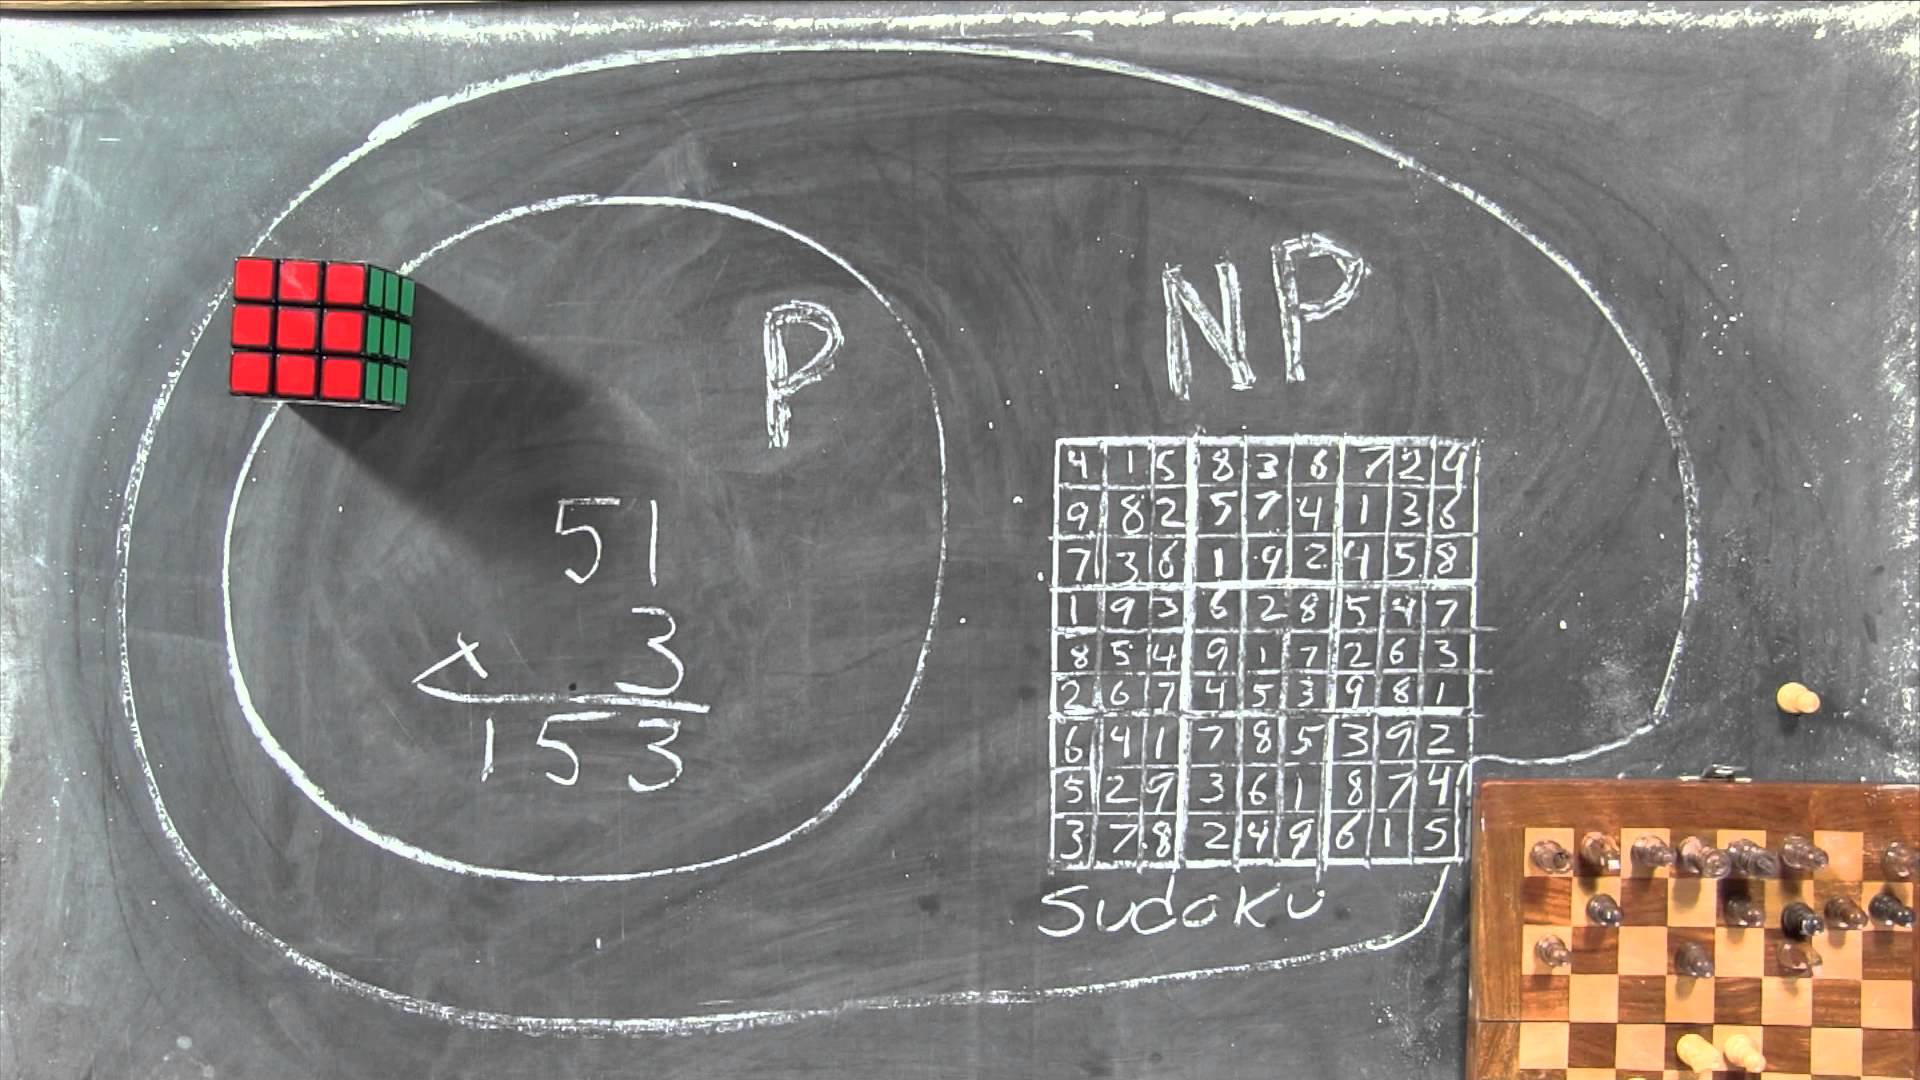 NP
P
51
× 3
153
4 1 5 8 3 6 7 2 9
9 8 2 5 7 4 1 3 6
7 3 6 1 9 2 4 5 8
1 9 3 6 2 8 5 4 7
8 5 4 9 1 7 2 6 3
2 6 7 4 5 3 9 8 1
6 4 1 7 8 5 3 9 2
5 2 9 3 6 1 8 7 4
3 7 8 2 4 9 6 1 5
Sudoku